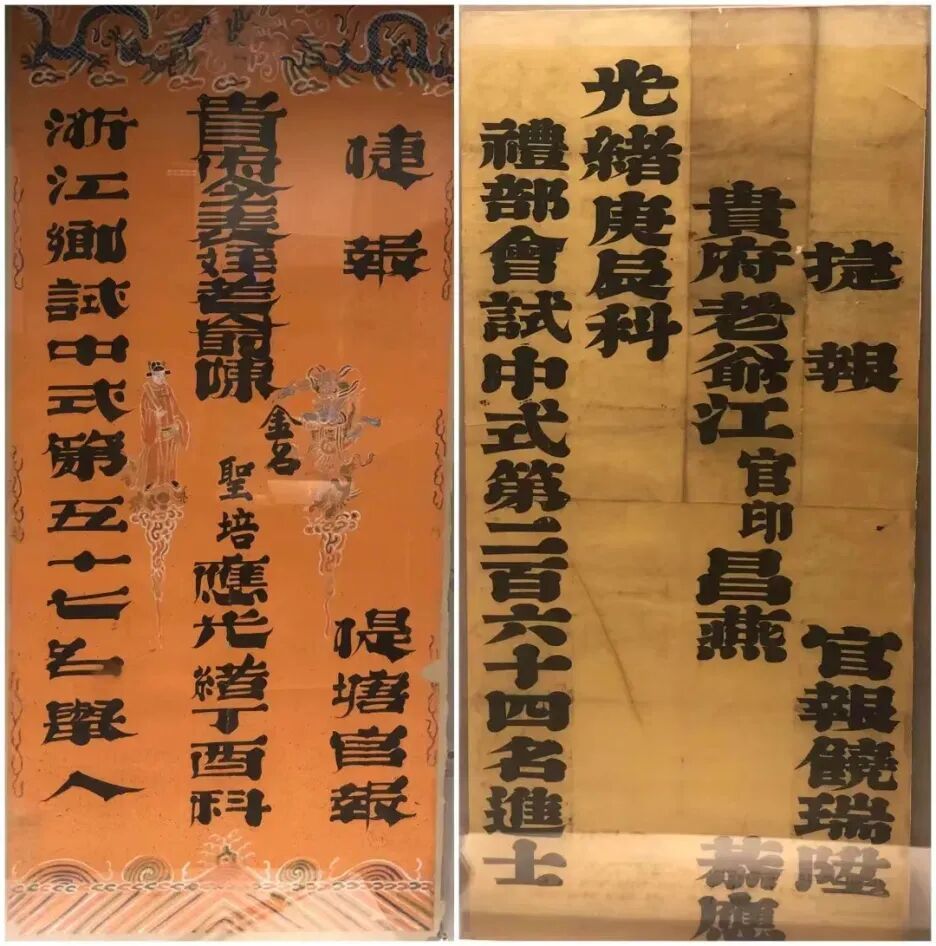 捷報 提塘官報
貴府令表姪老爺陳 金名 聖培 應光緒丁酉科
浙江鄉試中式第五十七名舉人
捷報 官報饒瑞陞
貴府老爺江官印昌燕 恭應
光緒庚辰科
禮部會試中式第二百六十四名進士